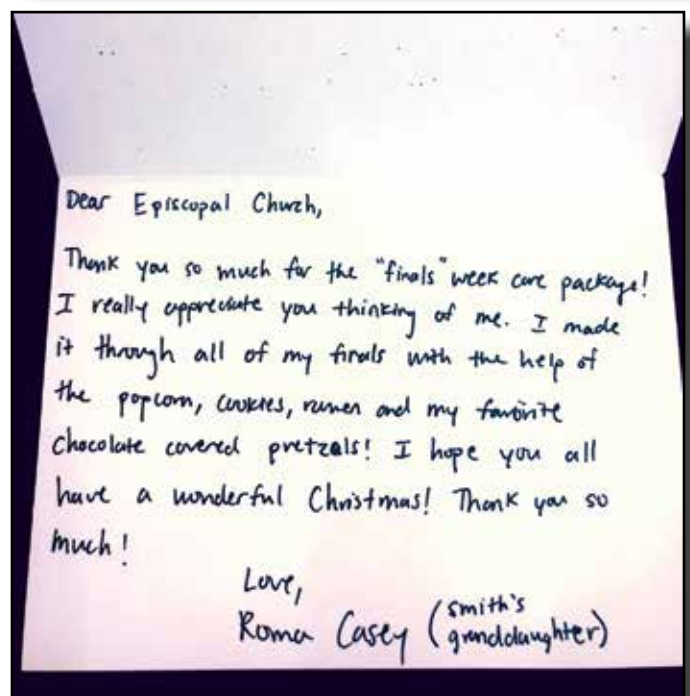 Dear Episcopal Church,
Thank you so much for the "finals" week care package!
I really appreciate you thinking of me. I made
it through all of my finals with the help of
the popcorn, cookies, ramen and my favorite
chocolate covered pretzels! I hope you all
have a wonderful Christmas! Thank you so
much!
Love,
Roma Casey (smith's
granddaughter)